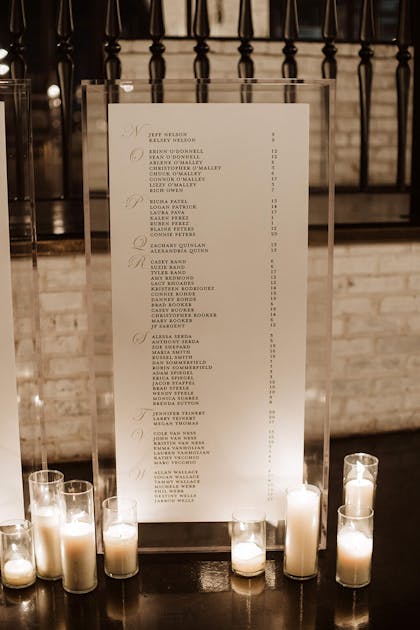 N
JEFF NELSON 3
KELSEY NELSON 3
O
ERINN O'DONNELL 12
SEAN O'DONNELL 12
ARLENE O'MALLEY
CHRISTOPHER O'MALLEY
CHUCK O'MALLEY
CONNOR O'MALLEY 17
LIZZY O'MALLEY
RICH OWEN
P
RICHA PATEL 13
LOGAN PATRICK 14
LAURA PAVA 17
KALEN PEREZ
RUBEN PEREZ
BLAINE PETERS 12
CONNIE PETERS 20
Q
ZACHARY QUINLAN 13
ALEXANDRIA QUINN
R
CASEY RAND
SUZIE RAND
TYLER RAND 17
AMY REDMOND
LACY RHOADES 12
KRISTEEN RODRIGUEZ 14
CONNIE ROHDE
DANNEY ROHDE
BRAD ROOKER
CASEY ROOKER
CHRISTOPHER ROOKER
MARY ROOKER
S
JP SARGENT 12
ALESSA SERDA
ANTHONY SERDA
ZOE SHEPARD
MARIA SMITH
RUSSEL SMITH
DAN SOMMERFIELD
ROBIN SOMMERFIELD
ADAM SPIEGEL
ERICA SPIEGEL
JACOB STAFFEL
BRAD STEELE
WENDY STEELE
MONICA SUAREZ
BRENDA SUTTON
T
JENNIFER TEINERT 20
LARRY TEINERT 20
MEGAN THOMAS 17
V
COLE VAN NESS
JOHN VAN NESS
KRISTIN VAN NESS
EMMA VANHOLIAN
LAUREN VANHOLIAN
KATHY VECCHIO
MARC VECCHIO
W
ALLAN WALLACE
LOGAN WALLACE
TAMMY WALLACE
MICHELE WEBB
PHIL WEBB
DESTINY WELLS
JARROD WELLS